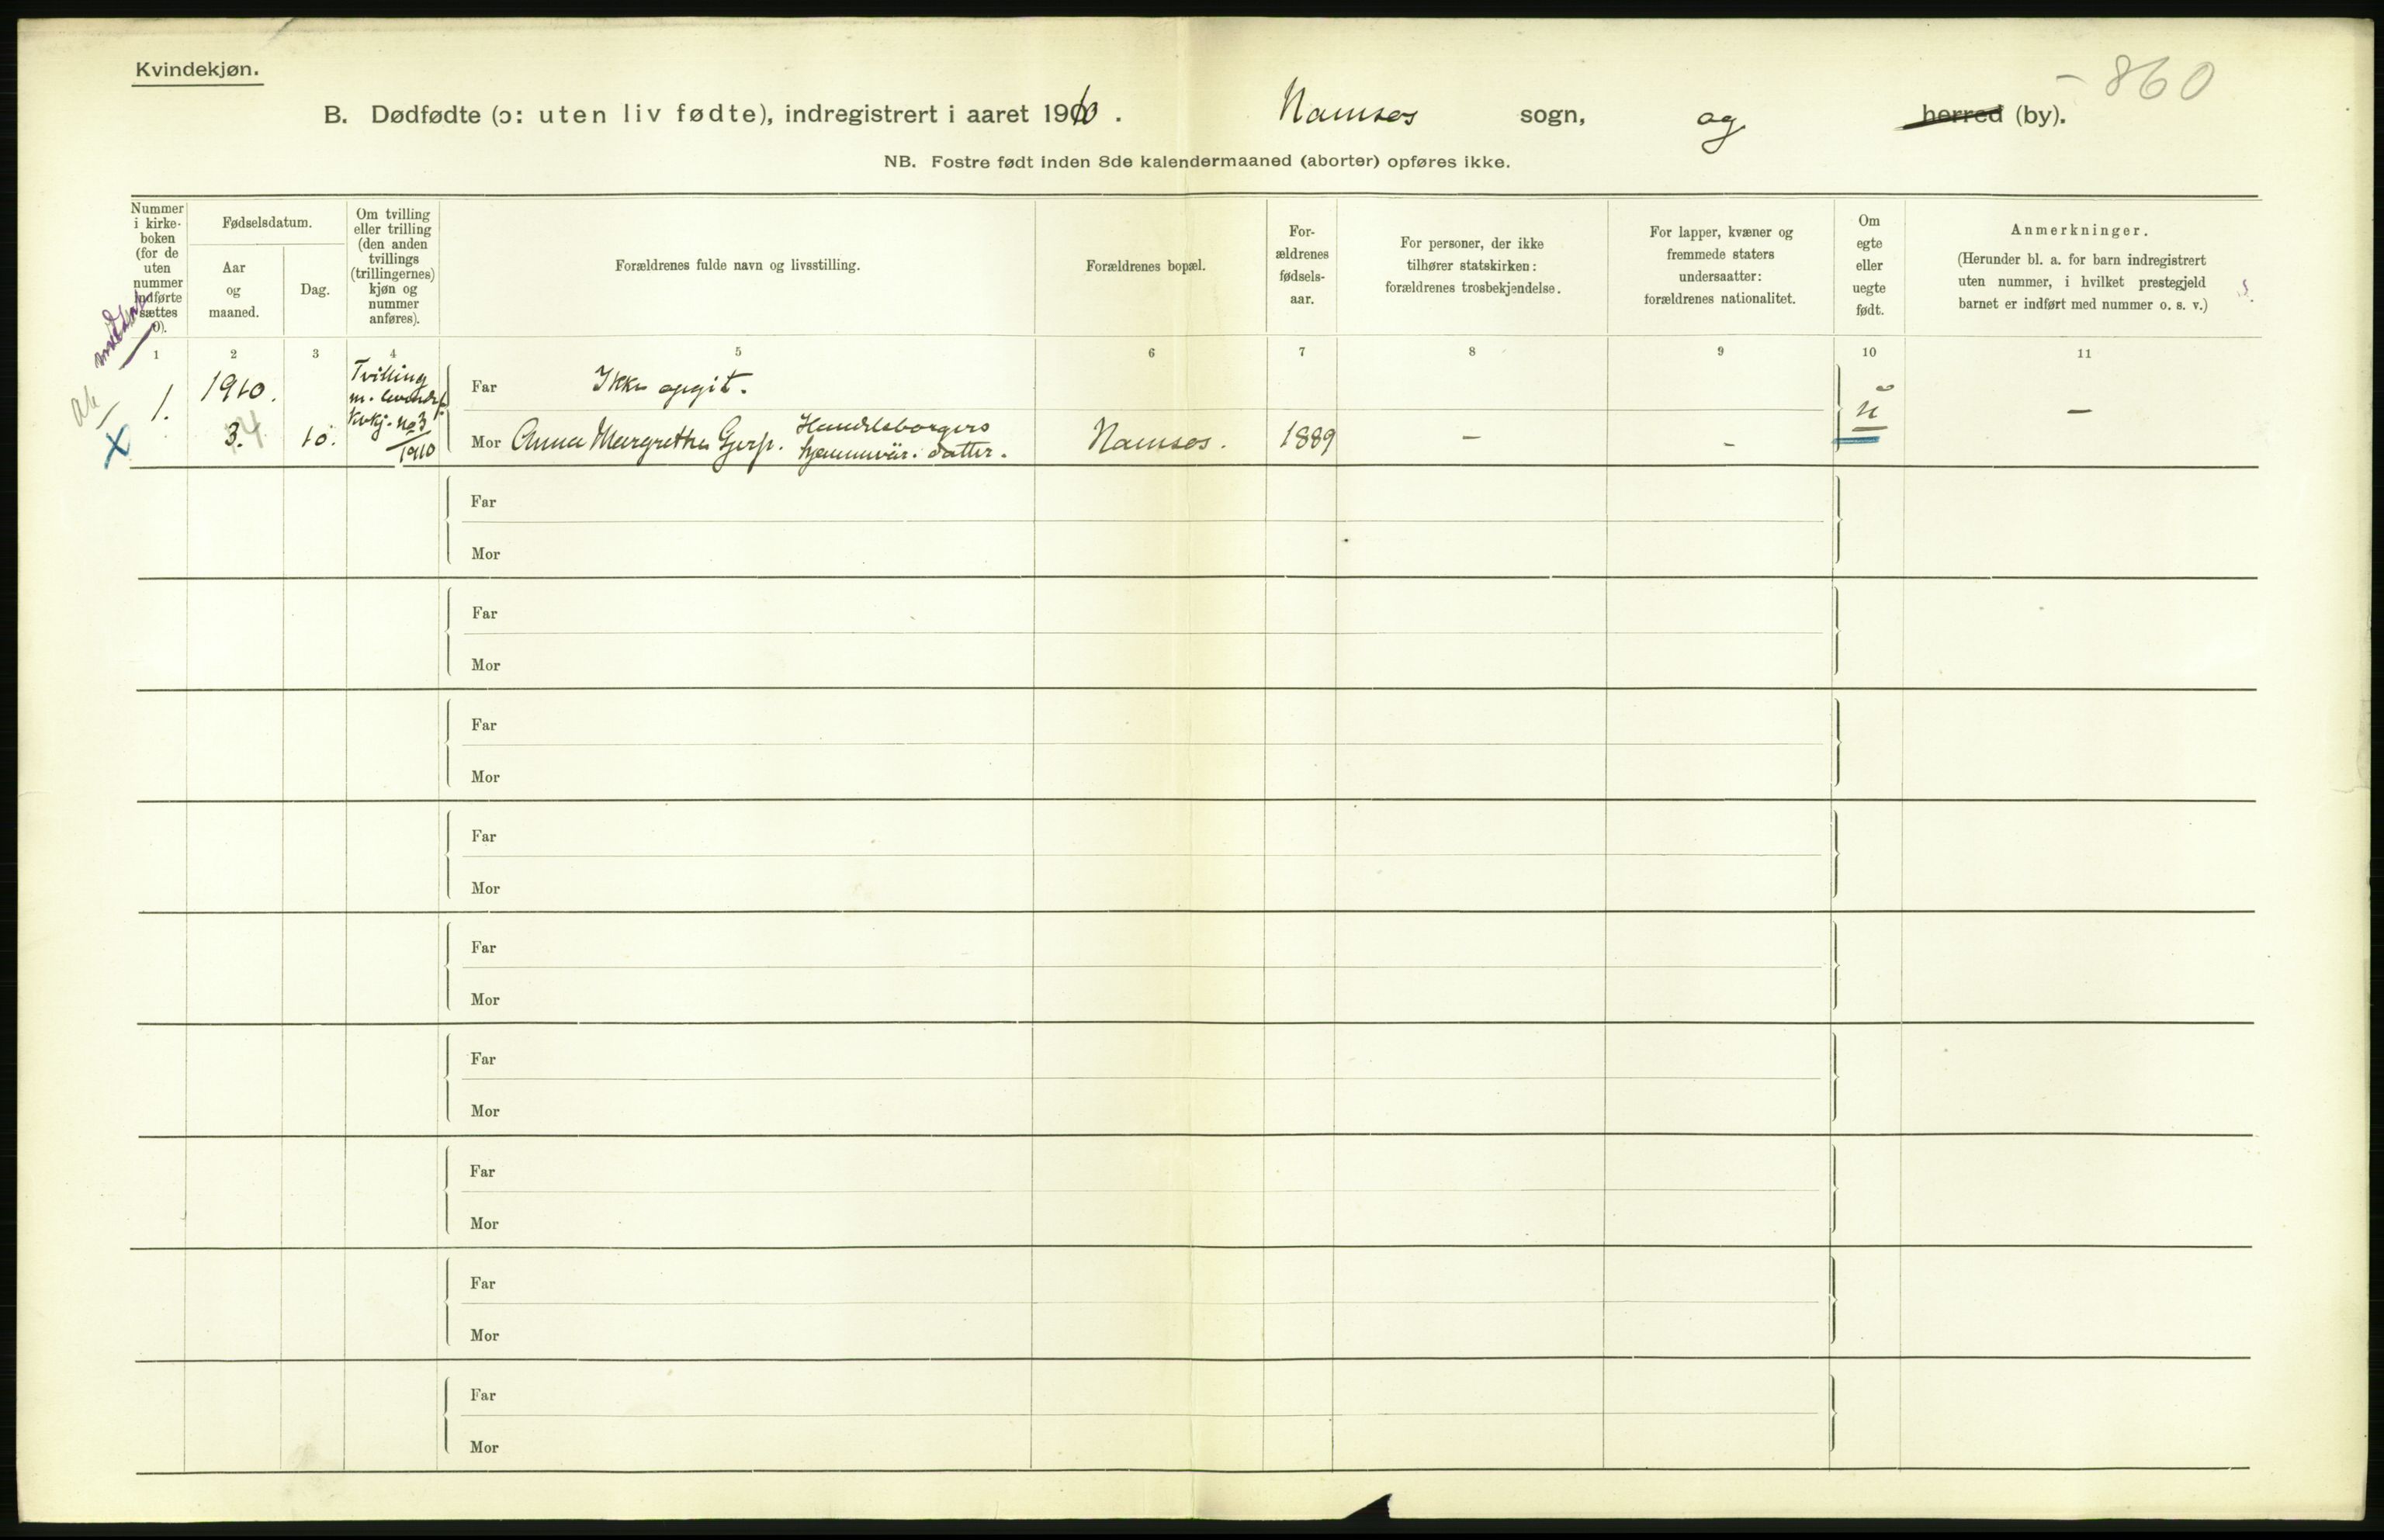 Kvindekjøn.
860
B. Dødfødte (ɔ: uten liv fødte), indregistrert i aaret 1910. Namsos sogn, og herred (by).
NB. Fostre født inden 8de kalendermaaned (aborter) opføres ikke.
Nummer
i kirke-
boken
(for de
uten
nummer
indførte
sættes
0).
Fødselsdatum.
Aar
og
maaned.
Dag.
Om tvilling
eller trilling
(den anden
tvillings
(trillingernes)
kjøn og
nummer
anføres).
Forældrenes fulde navn og livsstilling.
Forældrenes bopæl.
For-
ældrenes
fødsels-
aar.
For personer, der ikke
tilhører statskirken:
forældrenes trosbekjendelse.
For lapper, kvæner og
fremmede staters
undersaatter:
forældrenes nationalitet.
Om
egte
eller
uegte
født.
Anmerkninger.
(Herunder bl. a. for barn indregistrert
uten nummer, i hvilket prestegjeld
barnet er indført med nummer o. s. v.)
1 2 3 4 5 6 7 8 9 10 11
1.
1910.
3. 4
10.
Tvilling
Kvkj. No 3
1910
Far Ikke opgit.
Mor Anna Margrethe Gjerp. Handelsborgers
datter.
Namsos.
1889
–
–
–
Far
Mor
Far
Mor
Far
Mor
Far
Mor
Far
Mor
Far
Mor
Far
Mor
Far
Mor
Far
Mor